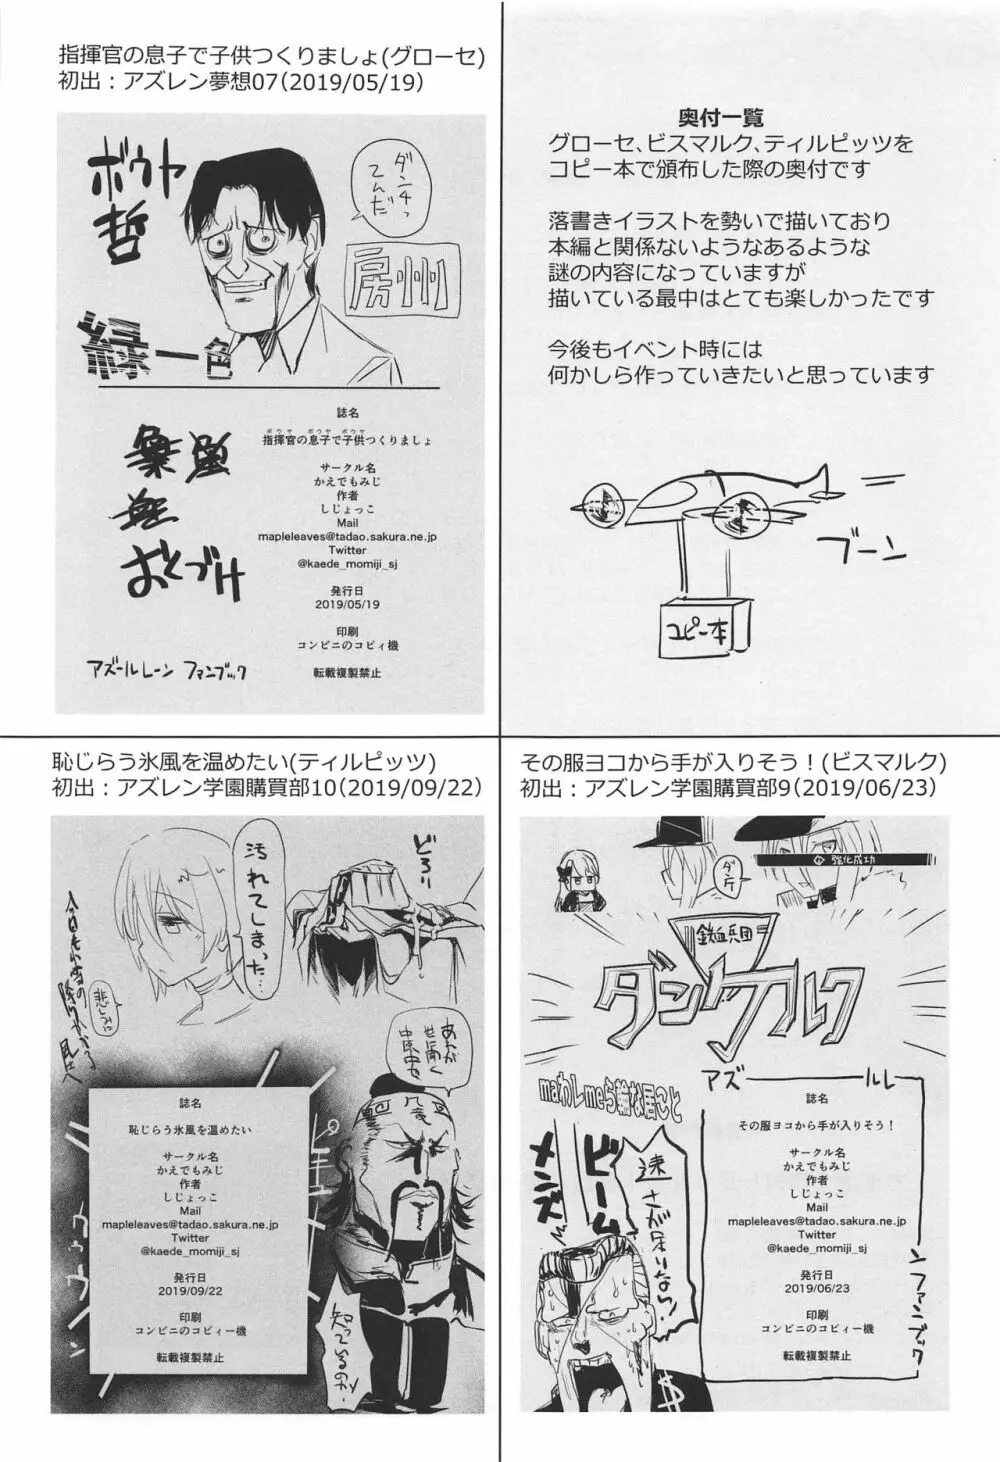 指揮官の息子で子供つくりましょ(グローセ)
初出：アズレン夢想07(2019/05/19)
ボウヤ
哲
ダンチっ
てんだ
房州
緑一色
誌名
ボウヤ ボウヤ ボウヤ
指揮官の息子で子供つくりましょ
サークル名
かえでもみじ
作者
しじょっこ
Mail
mapleleaves@tadao.sakura.ne.jp
Twitter
@kaede_momiji_sj
発行日
2019/05/19
印刷
コンビニのコピィ機
転載複製禁止
おくづけ
アズールレーン ファンブック
奥付一覧
グローセ、ビスマルク、ティルピッツを
コピー本で頒布した際の奥付です
落書きイラストを勢いで描いており
本編と関係ないようなあるような
謎の内容になっていますが
描いている最中はとても楽しかったです
今後もイベント時には
何かしら作っていきたいと思っています
ブーン
コピー本
恥じらう氷風を温めたい(ティルピッツ)
初出：アズレン学園購買部10(2019/09/22)
どろり
汚れて
しまった…
悲しみに
あれが
世に聞く
中原中也
誌名
恥じらう氷風を温めたい
サークル名
かえでもみじ
作者
しじょっこ
Mail
mapleleaves@tadao.sakura.ne.jp
Twitter
@kaede_momiji_sj
発行日
2019/09/22
印刷
コンビニのコピィー機
転載複製禁止
知っているのか
その服ヨコから手が入りそう！(ビスマルク)
初出：アズレン学園購買部9(2019/06/23)
強化成功
鉄血兵団
ダンケルク
アズールレーンファンブック
maわしmeら輪な眉こと
ビーム
メンズ
速さが足りない！
誌名
その服ヨコから手が入りそう！
サークル名
かえでもみじ
作者
しじょっこ
Mail
mapleleaves@tadao.sakura.ne.jp
Twitter
@kaede_momiji_sj
発行日
2019/06/23
印刷
コンビニのコピィー機
転載複製禁止
$